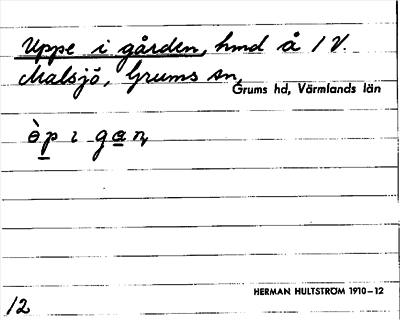 Uppe i gården, hmd å 1 V.
Malsjö, Grums sn,
Grums hd, Värmlands län
òp ı gan
HERMAN HULTSTRÖM 1910–12
12